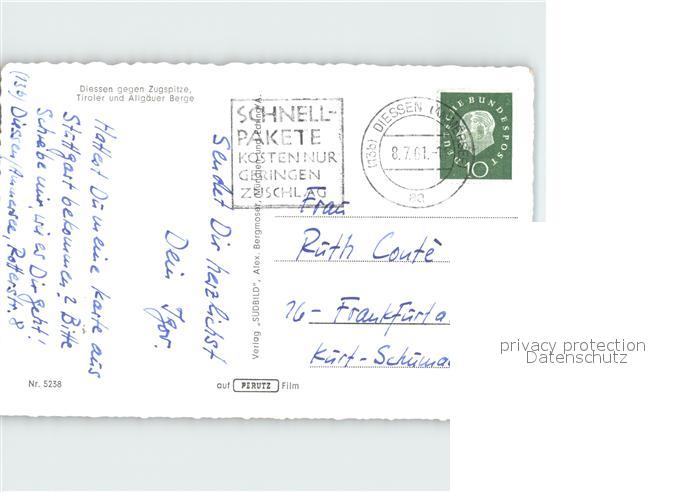 Diessen gegen Zugspitze,
Tiroler und Allgäuer Berge
(13b) Diessen/Ammersee, Rotterstr. 8
Hattest Du meine Karte aus
Stuttgart bekommen? Bitte
Schreibe mir, wie es Dir geht!
Sendet Dir herzlichst
Dein Igor.
Nr. 5238
Verlag „SÜDBILD", Alex. Bergmoser, München
SCHNELL-
PAKETE
KOSTEN NUR
GERINGEN
ZUSCHLAG
(13b) DIESSEN
8.7.61.-
aa
DEUTSCHE BUNDESPOST
10
Frau
Ruth Conté
16- Frankfurt a
Kurt-Schuma
auf PERUTZ Film
privacy protection
Datenschutz